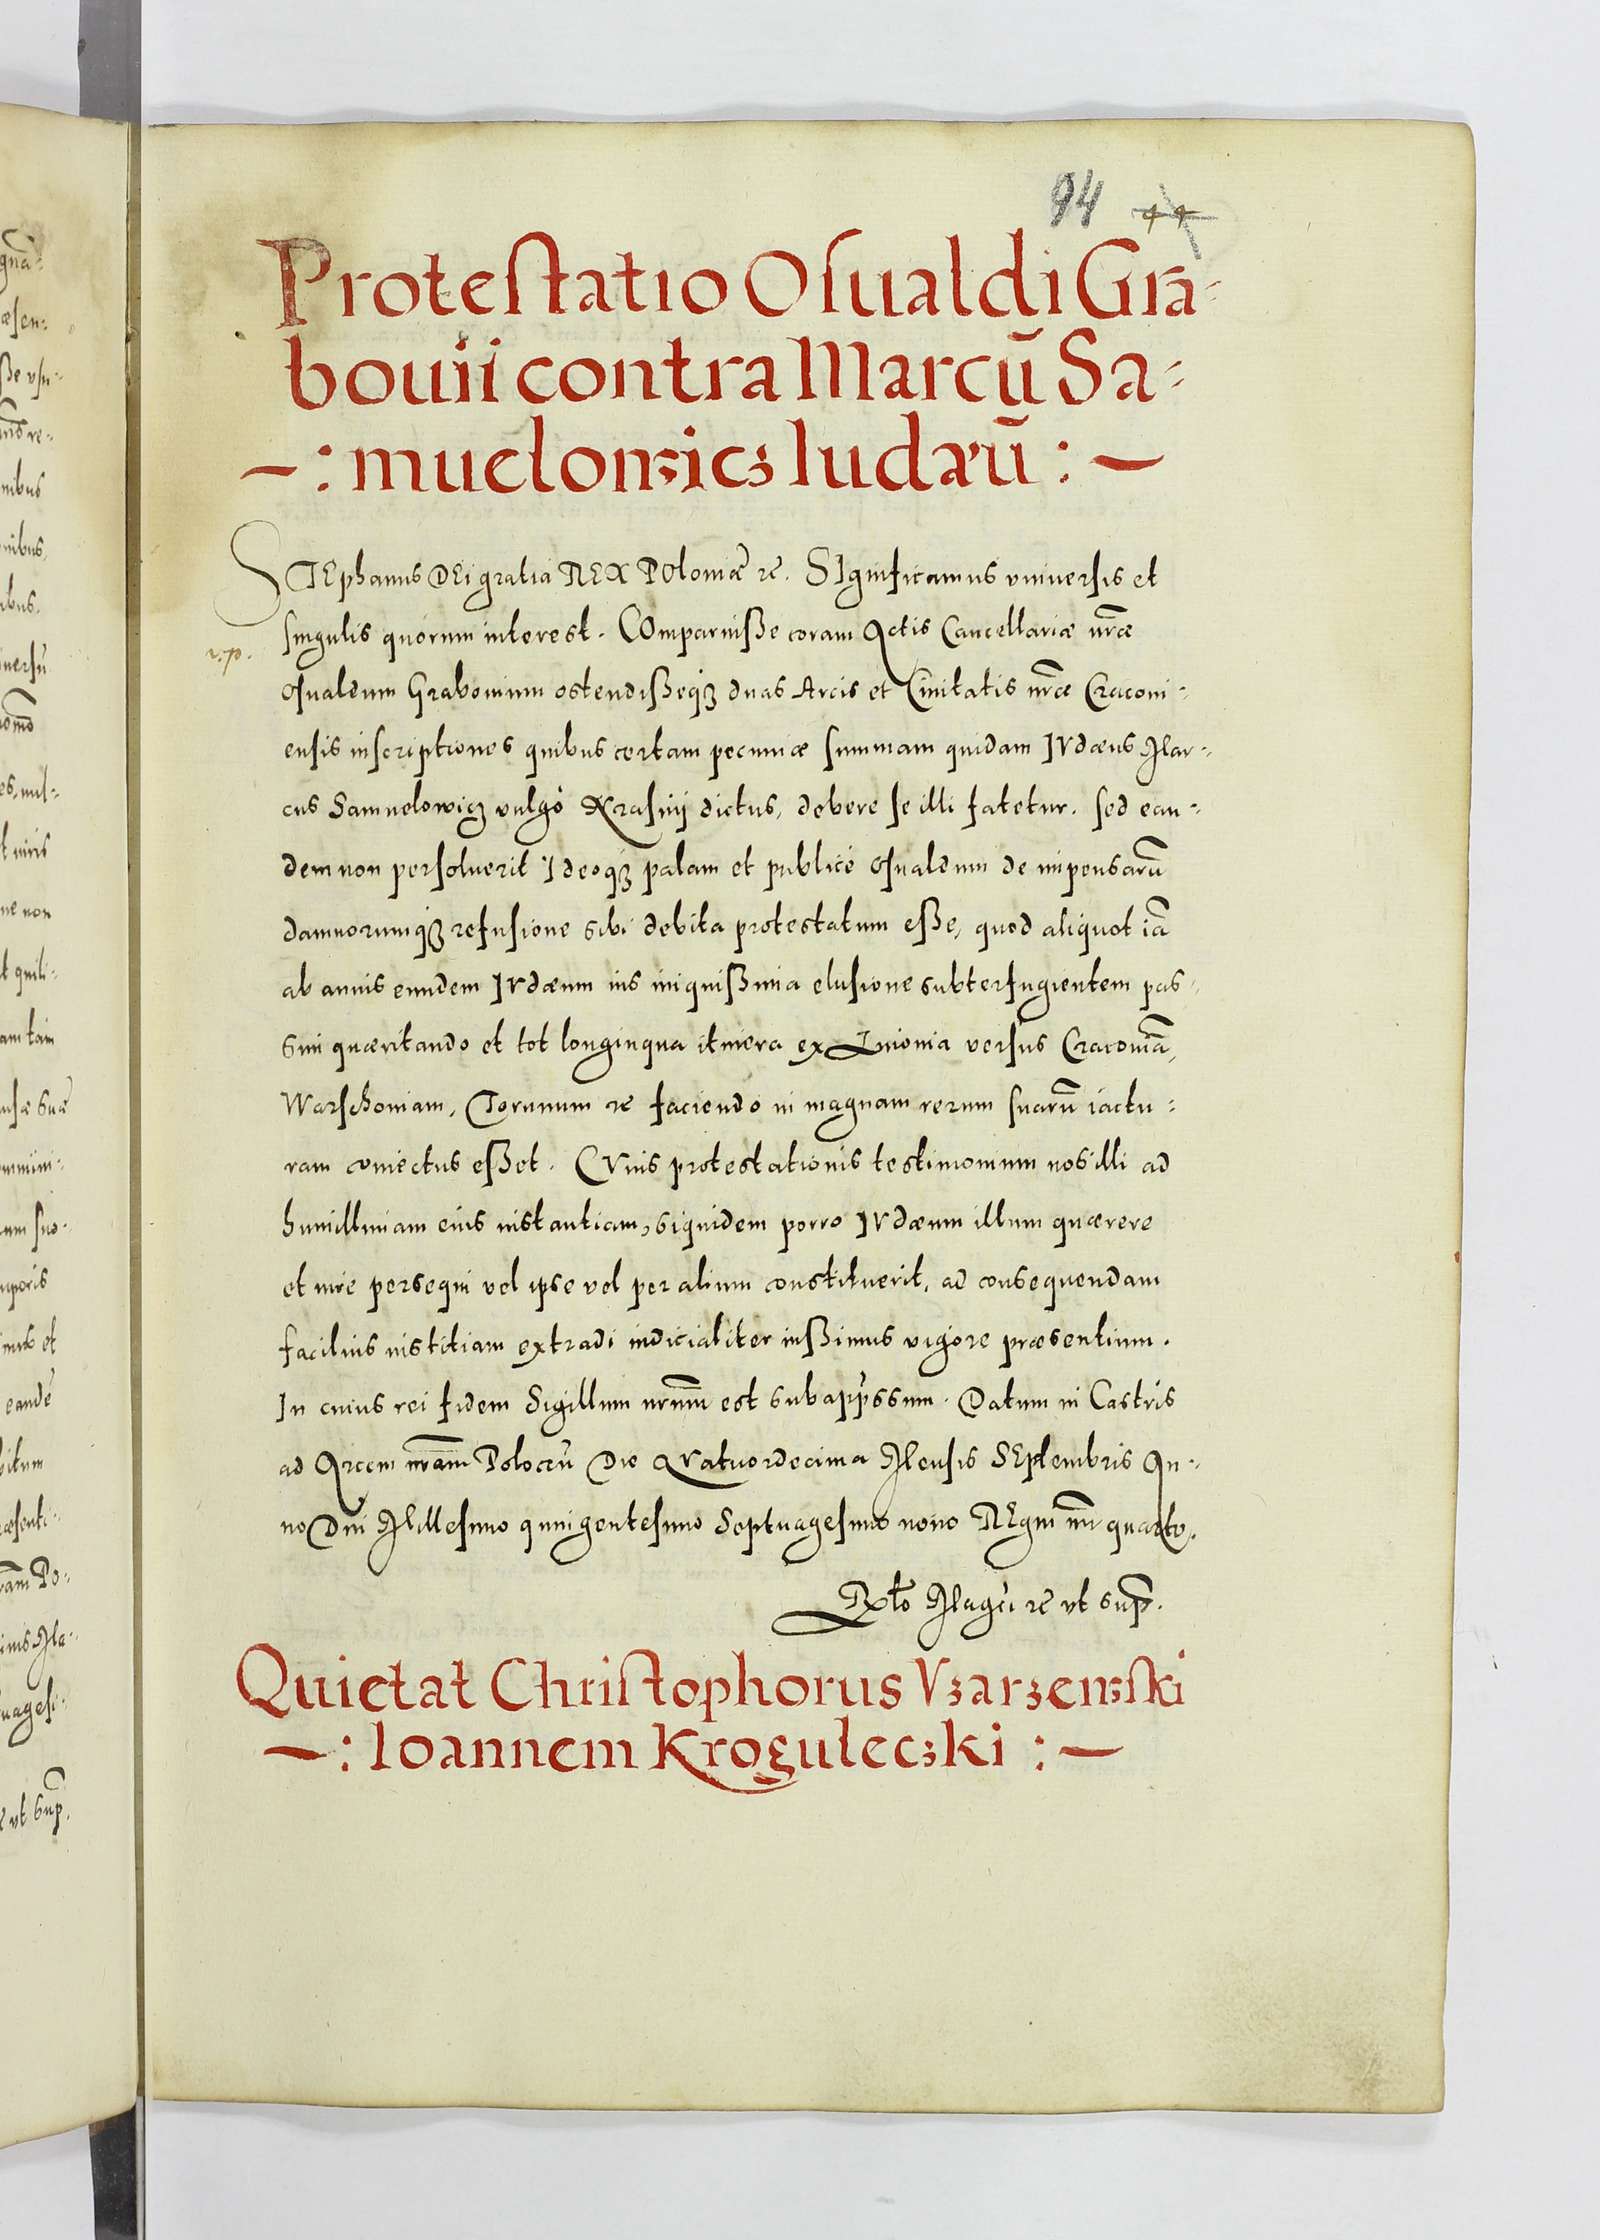 94 44
Protestatio Osualdi Gra=
bouii contra Marcū Sa=
—: muelowicz Iudæū :—
STEphanus DEi gratia REX POloniæ rc. SIgnificamus vniuersis et
singulis quorum interest. COmparuisse coram Actis Cancellariæ nr̄æ
r.p.
Osualdum Grabouium ostendisseqʒ duas Arcis et Ciuitatis nr̄æ Cracoui=
ensis inscriptiones quibus certam pecuniæ summam quidam IVdæus Mar=
cus Samuelowicz vulgò Krasnij dictus, debere se illi fatetur. sed ean=
dem non persoluerit Ideoqʒ palam et publicè Osualdum de impensarū
damnorumqʒ refusione sibi debita protestatum esse, quod aliquot iā
ab annis eundem IVdæum ius iniquissima elusione subterfugientem pas=
sim quæritando et tot longinqua itinera ex Liuonia versus Cracouiā,
Warschouiam, Torunum rc faciendo in magnam rerum suarū iactu=
ram coniectus esset. CVius protestationis testimonium nos illi ad
humillimam eius instantiam, siquidem porro IVdæum illum quærere
et iure persequi vel ipse vel per alium constituerit, ad consequendam
facilius iustitiam extradi iudicialiter iussimus vigore præsentium.
In cuius rei fidem Sigillum nrūm est subapp̄ssum. Datum in Castris
ad Arcem nrām Polocen̄ Die QVatuordecima Mensis SEptembris An=
no Dni Millesimo quingentesimo Septuagesimo nono REgni nrī quarto.
Rlō Magci rc vt sup̄.
Quietat Christophorus Vzarzewski
—: Ioannem Kroguleczki :—